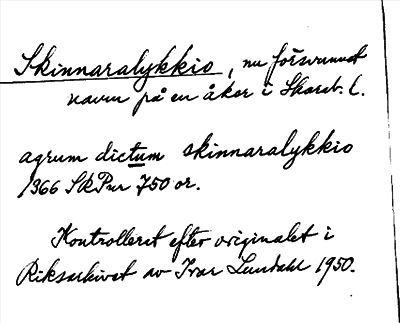 Skinnaralykkio, nu försvunnet
namn på en åker i Skarab. l.
agrum dictum skinnaralykkio
1366 SkPur 750 or.
Kontrollerat efter originalet i
Riksarkivet av Ivar Lundahl 1950.